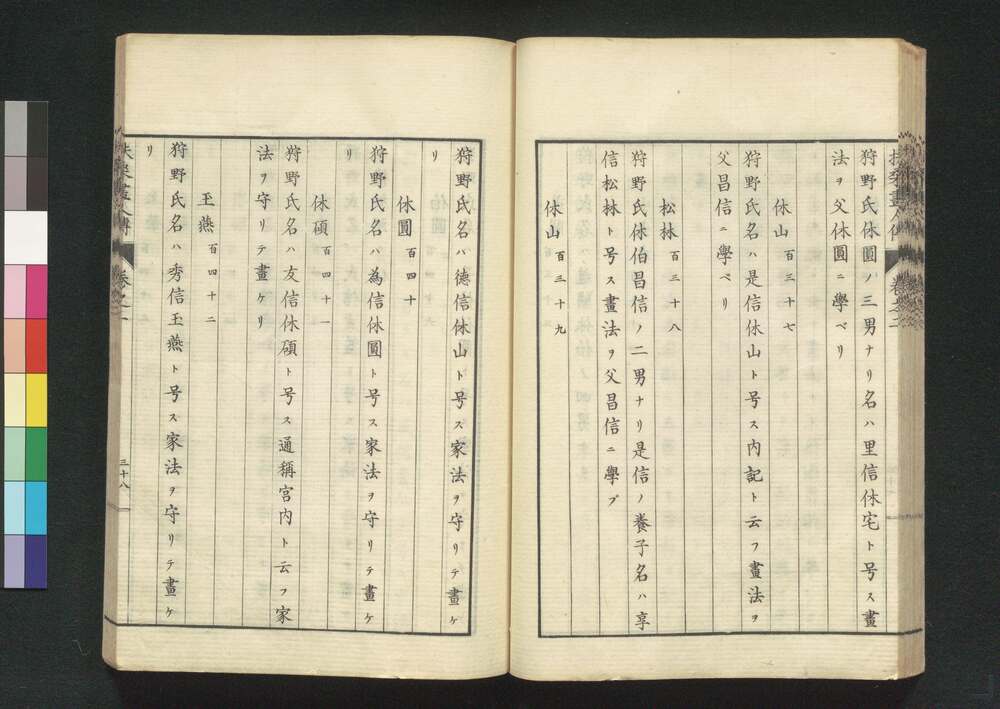 狩野氏休圓ノ三男ナリ名ハ里信休宅ト号ス畫
法ヲ父休圓ニ學ベリ
休山 百三十七
狩野氏名ハ是信休山ト号ス内記ト云フ畫法ヲ
父昌信ニ學ベリ
松林 百三十八
狩野氏休伯昌信ノ二男ナリ是信ノ養子名ハ享
信松林ト号ス畫法ヲ父昌信ニ學ブ
休山 百三十九
狩野氏名ハ德信休山ト号ス家法ヲ守リテ畫ケ
リ
休圓 百四十
狩野氏名ハ為信休圓ト号ス家法ヲ守リテ畫ケ
リ
休碩 百四十一
狩野氏名ハ友信休碩ト号ス通稱宮内ト云フ家
法ヲ守リテ畫ケリ
玉燕 百四十二
狩野氏名ハ秀信玉燕ト号ス家法ヲ守リテ畫ケ
リ
三十八